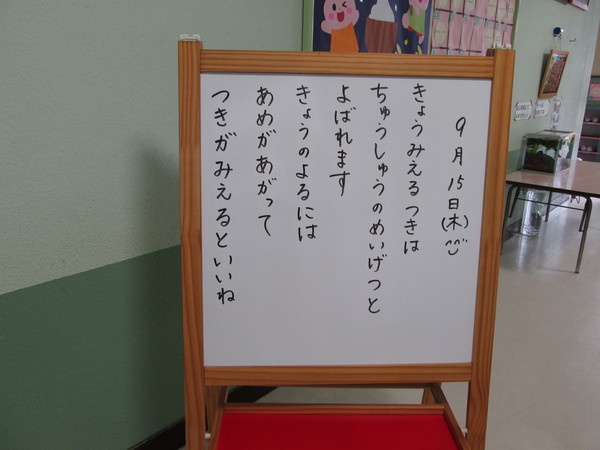 9月15日(木)
きょうみえるつきは
ちゅうしゅうのめいげつと
よばれます
きょうのよるには
あめがあがって
つきがみえるといいね